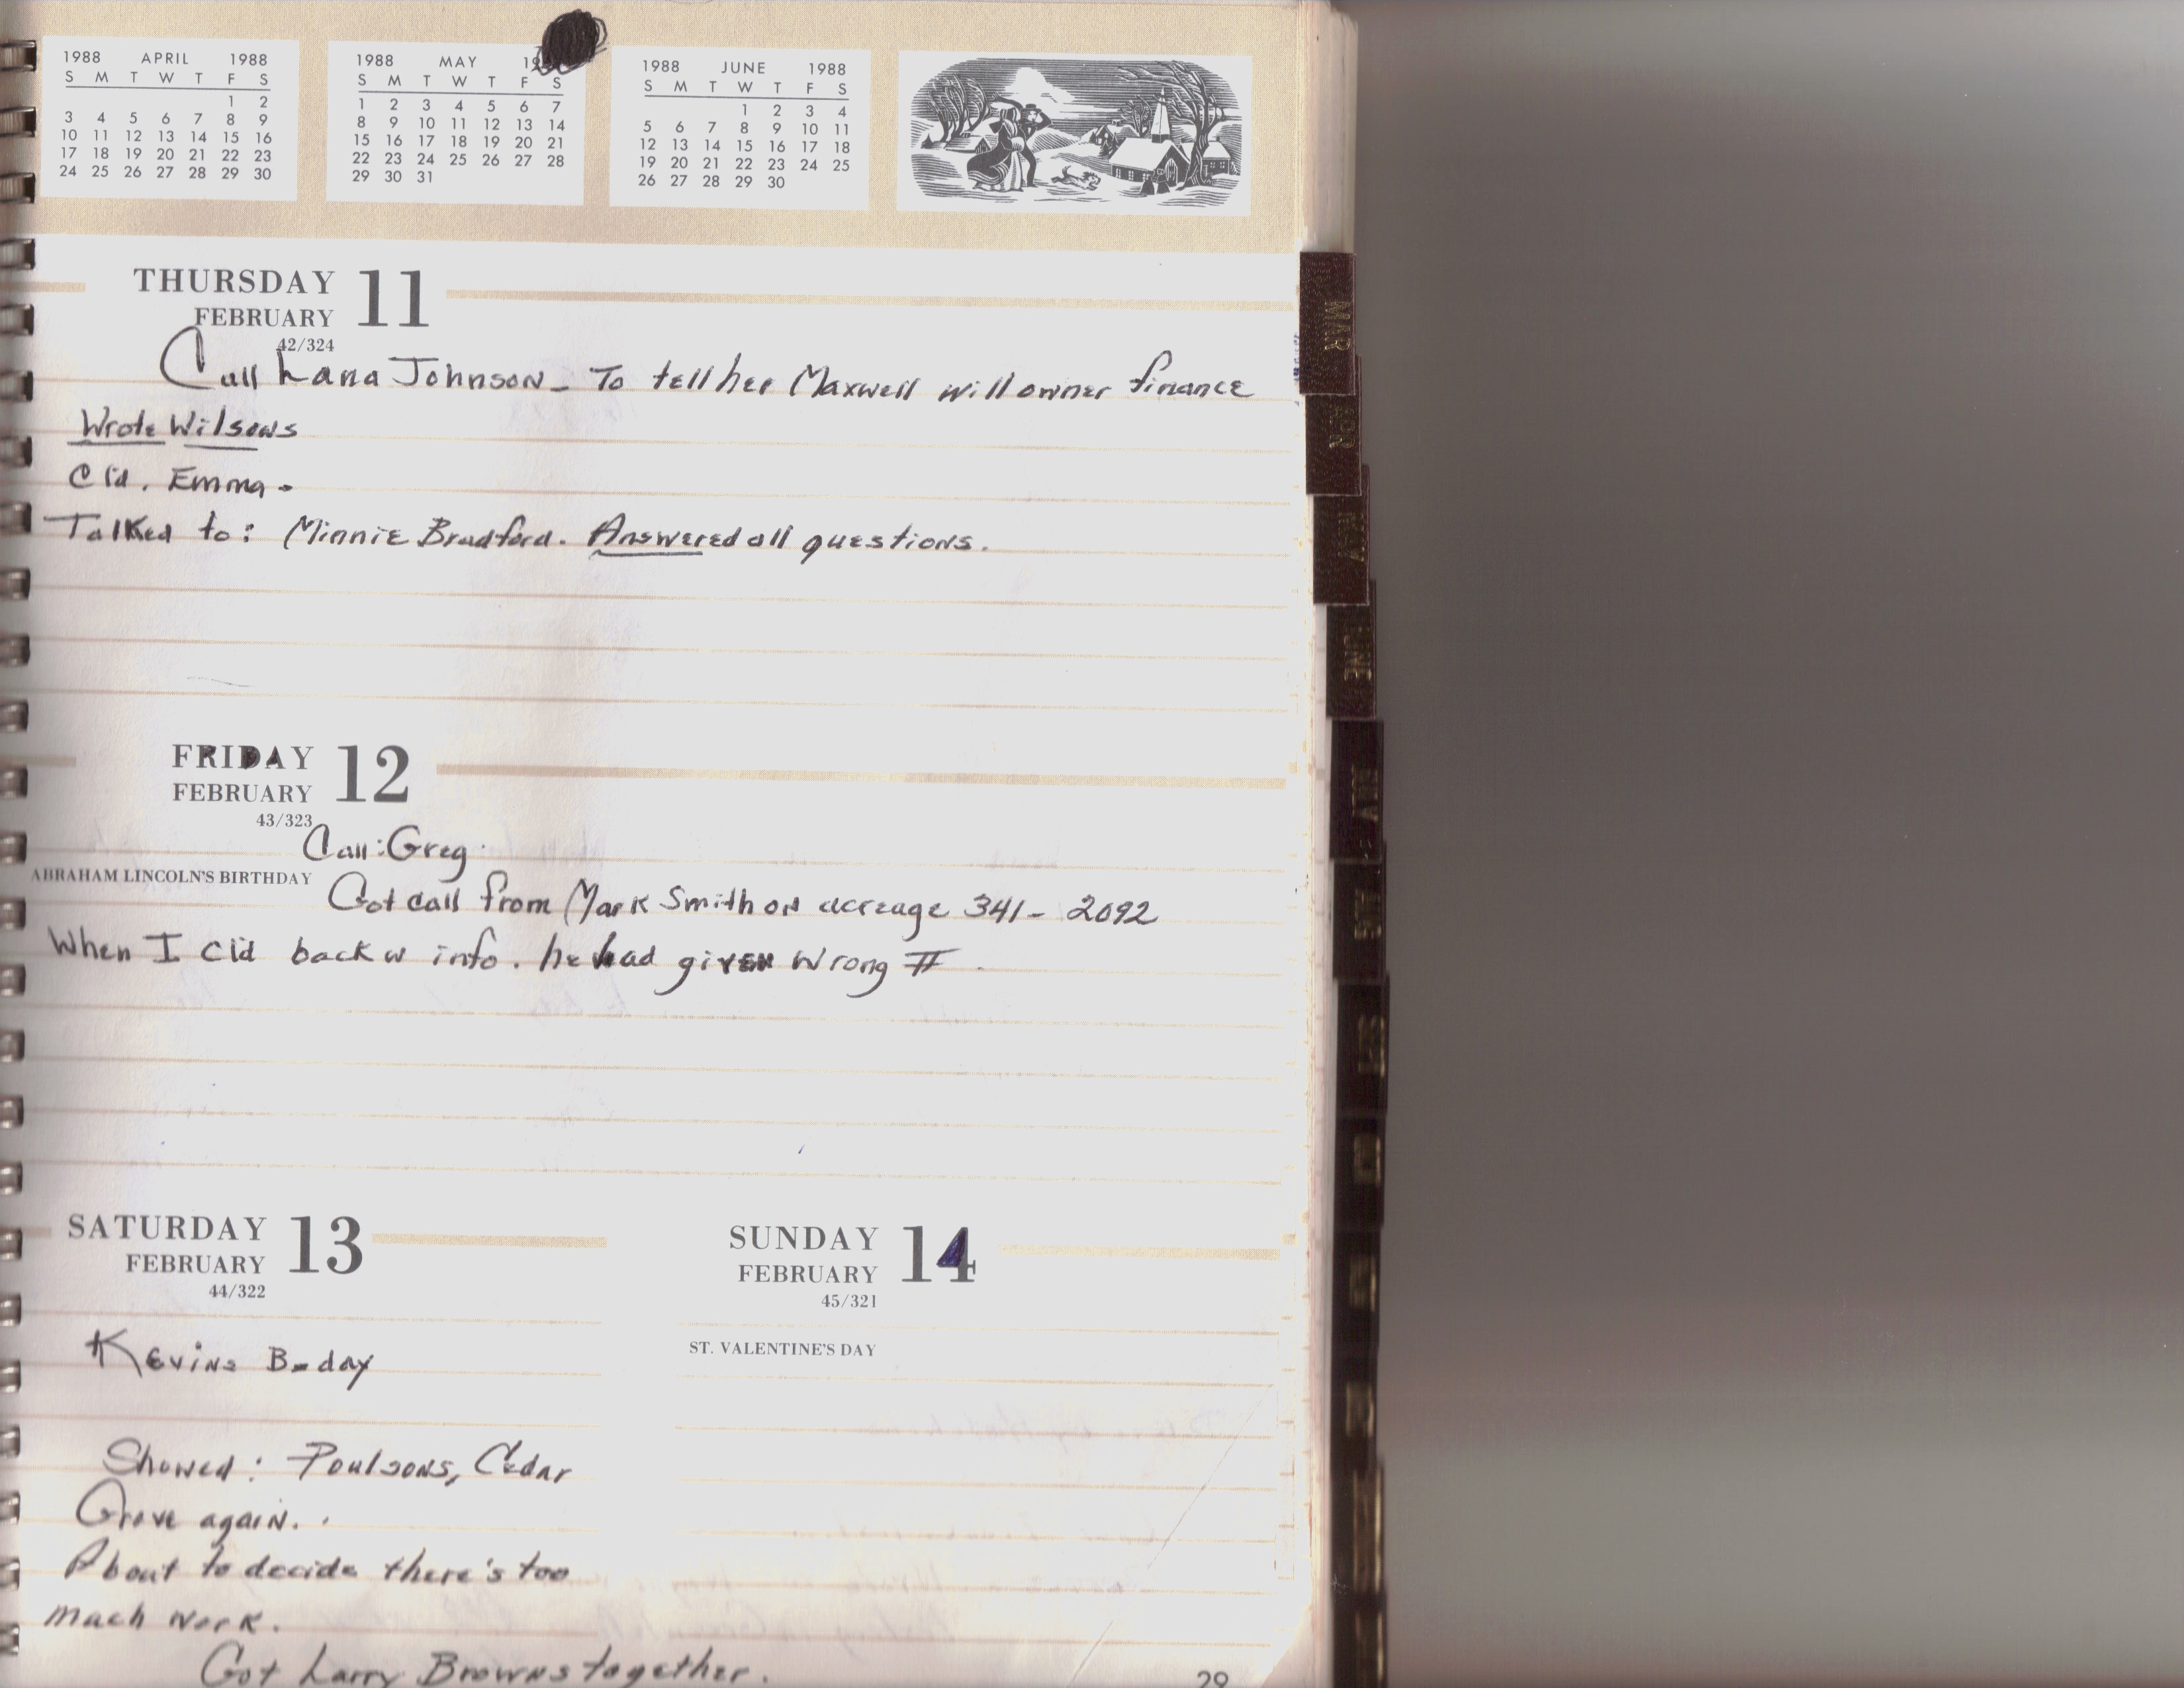 1988 APRIL 1988
S M T W T F S
1 2
3 4 5 6 7 8 9
10 11 12 13 14 15 16
17 18 19 20 21 22 23
24 25 26 27 28 29 30
1988 MAY
S M T W T F S
1 2 3 4 5 6 7
8 9 10 11 12 13 14
15 16 17 18 19 20 21
22 23 24 25 26 27 28
29 30 31
1988 JUNE 1988
S M T W T F S
1 2 3 4
5 6 7 8 9 10 11
12 13 14 15 16 17 18
19 20 21 22 23 24 25
26 27 28 29 30
THURSDAY 11
FEBRUARY
42/324
Call Lana Johnson - To tell her Maxwell will owner finance
Wrote Wilsons
Cld. Emma.
Talked to: Minnie Bradford. Answered all questions.
FRIDAY 12
FEBRUARY
43/323
Call: Greg.
ABRAHAM LINCOLN'S BIRTHDAY
Got call from Mark Smith on acreage 341-2092
When I cld back w info. he had given wrong #.
SATURDAY 13
FEBRUARY
44/322
Kevins B-day
Showed: Poulsons, Cedar
Grove again.
About to decide there's too
much work.
Got Larry Browns together.
SUNDAY 14
FEBRUARY
45/321
ST. VALENTINE'S DAY
29
MAR
APR
MAY
JUNE
JULY
AUG
SEPT